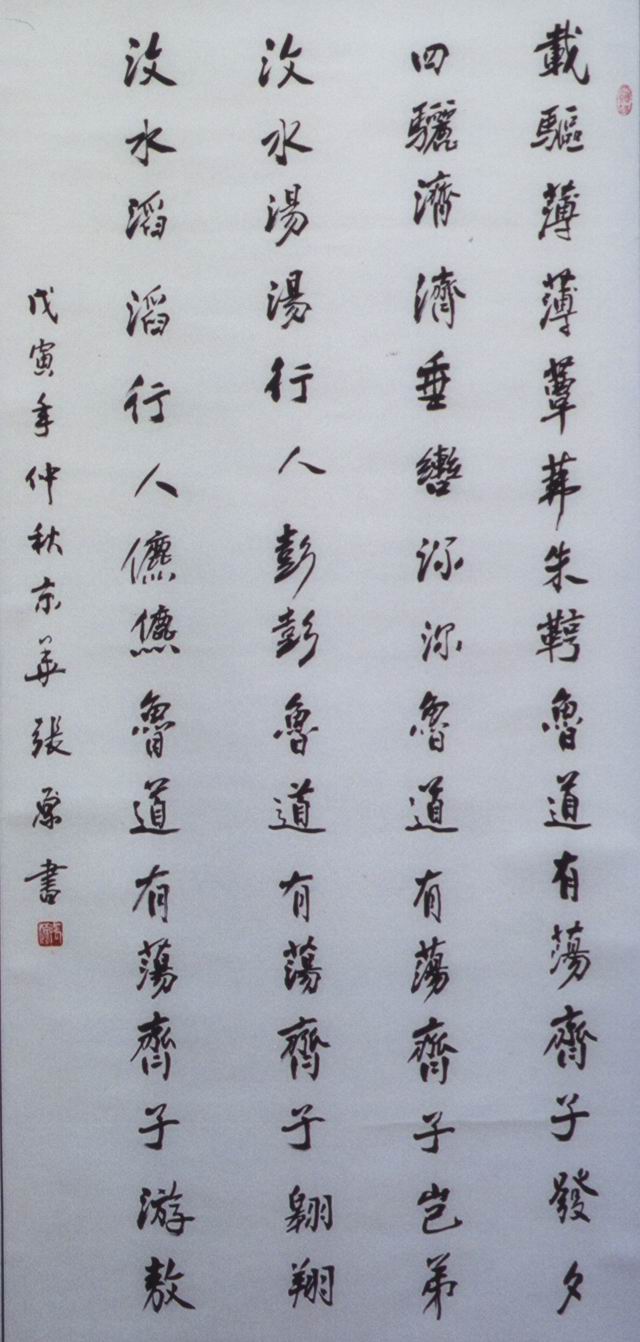 載驅薄薄簟茀朱鞟魯道有蕩齊子發夕
四驪濟濟垂轡沵沵魯道有蕩齊子豈弟
汶水湯湯行人彭彭魯道有蕩齊子翱翔
汶水滔滔行人儦儦魯道有蕩齊子游敖
戊寅年仲秋京華張原書